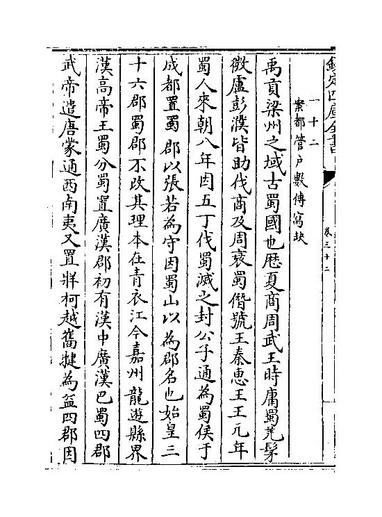 欽定四庫全書
卷三十二
一十二
案都管户數傳寫缺
禹貢梁州之域古蜀國也歷夏商周武王時庸蜀羌髳
微盧彭濮皆助伐商及周衰蜀僭號王秦惠王王元年
蜀人來朝八年因五丁伐蜀滅之封公子通為蜀侯于
成都置蜀郡以張若為守因蜀山以為郡名也始皇三
十六郡蜀郡不改其理本在青衣江今嘉州龍遊縣界
漢高帝王蜀分蜀置廣漢郡初有漢中廣漢巴蜀四郡
武帝遣唐蒙通西南夷又置牂柯越巂犍為益四郡因